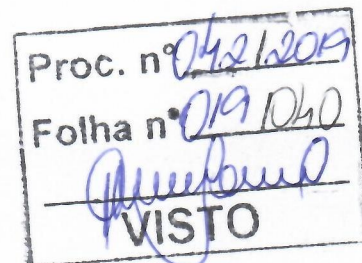 Proc. nº 042/2019
Folha nº 019/040
VISTO